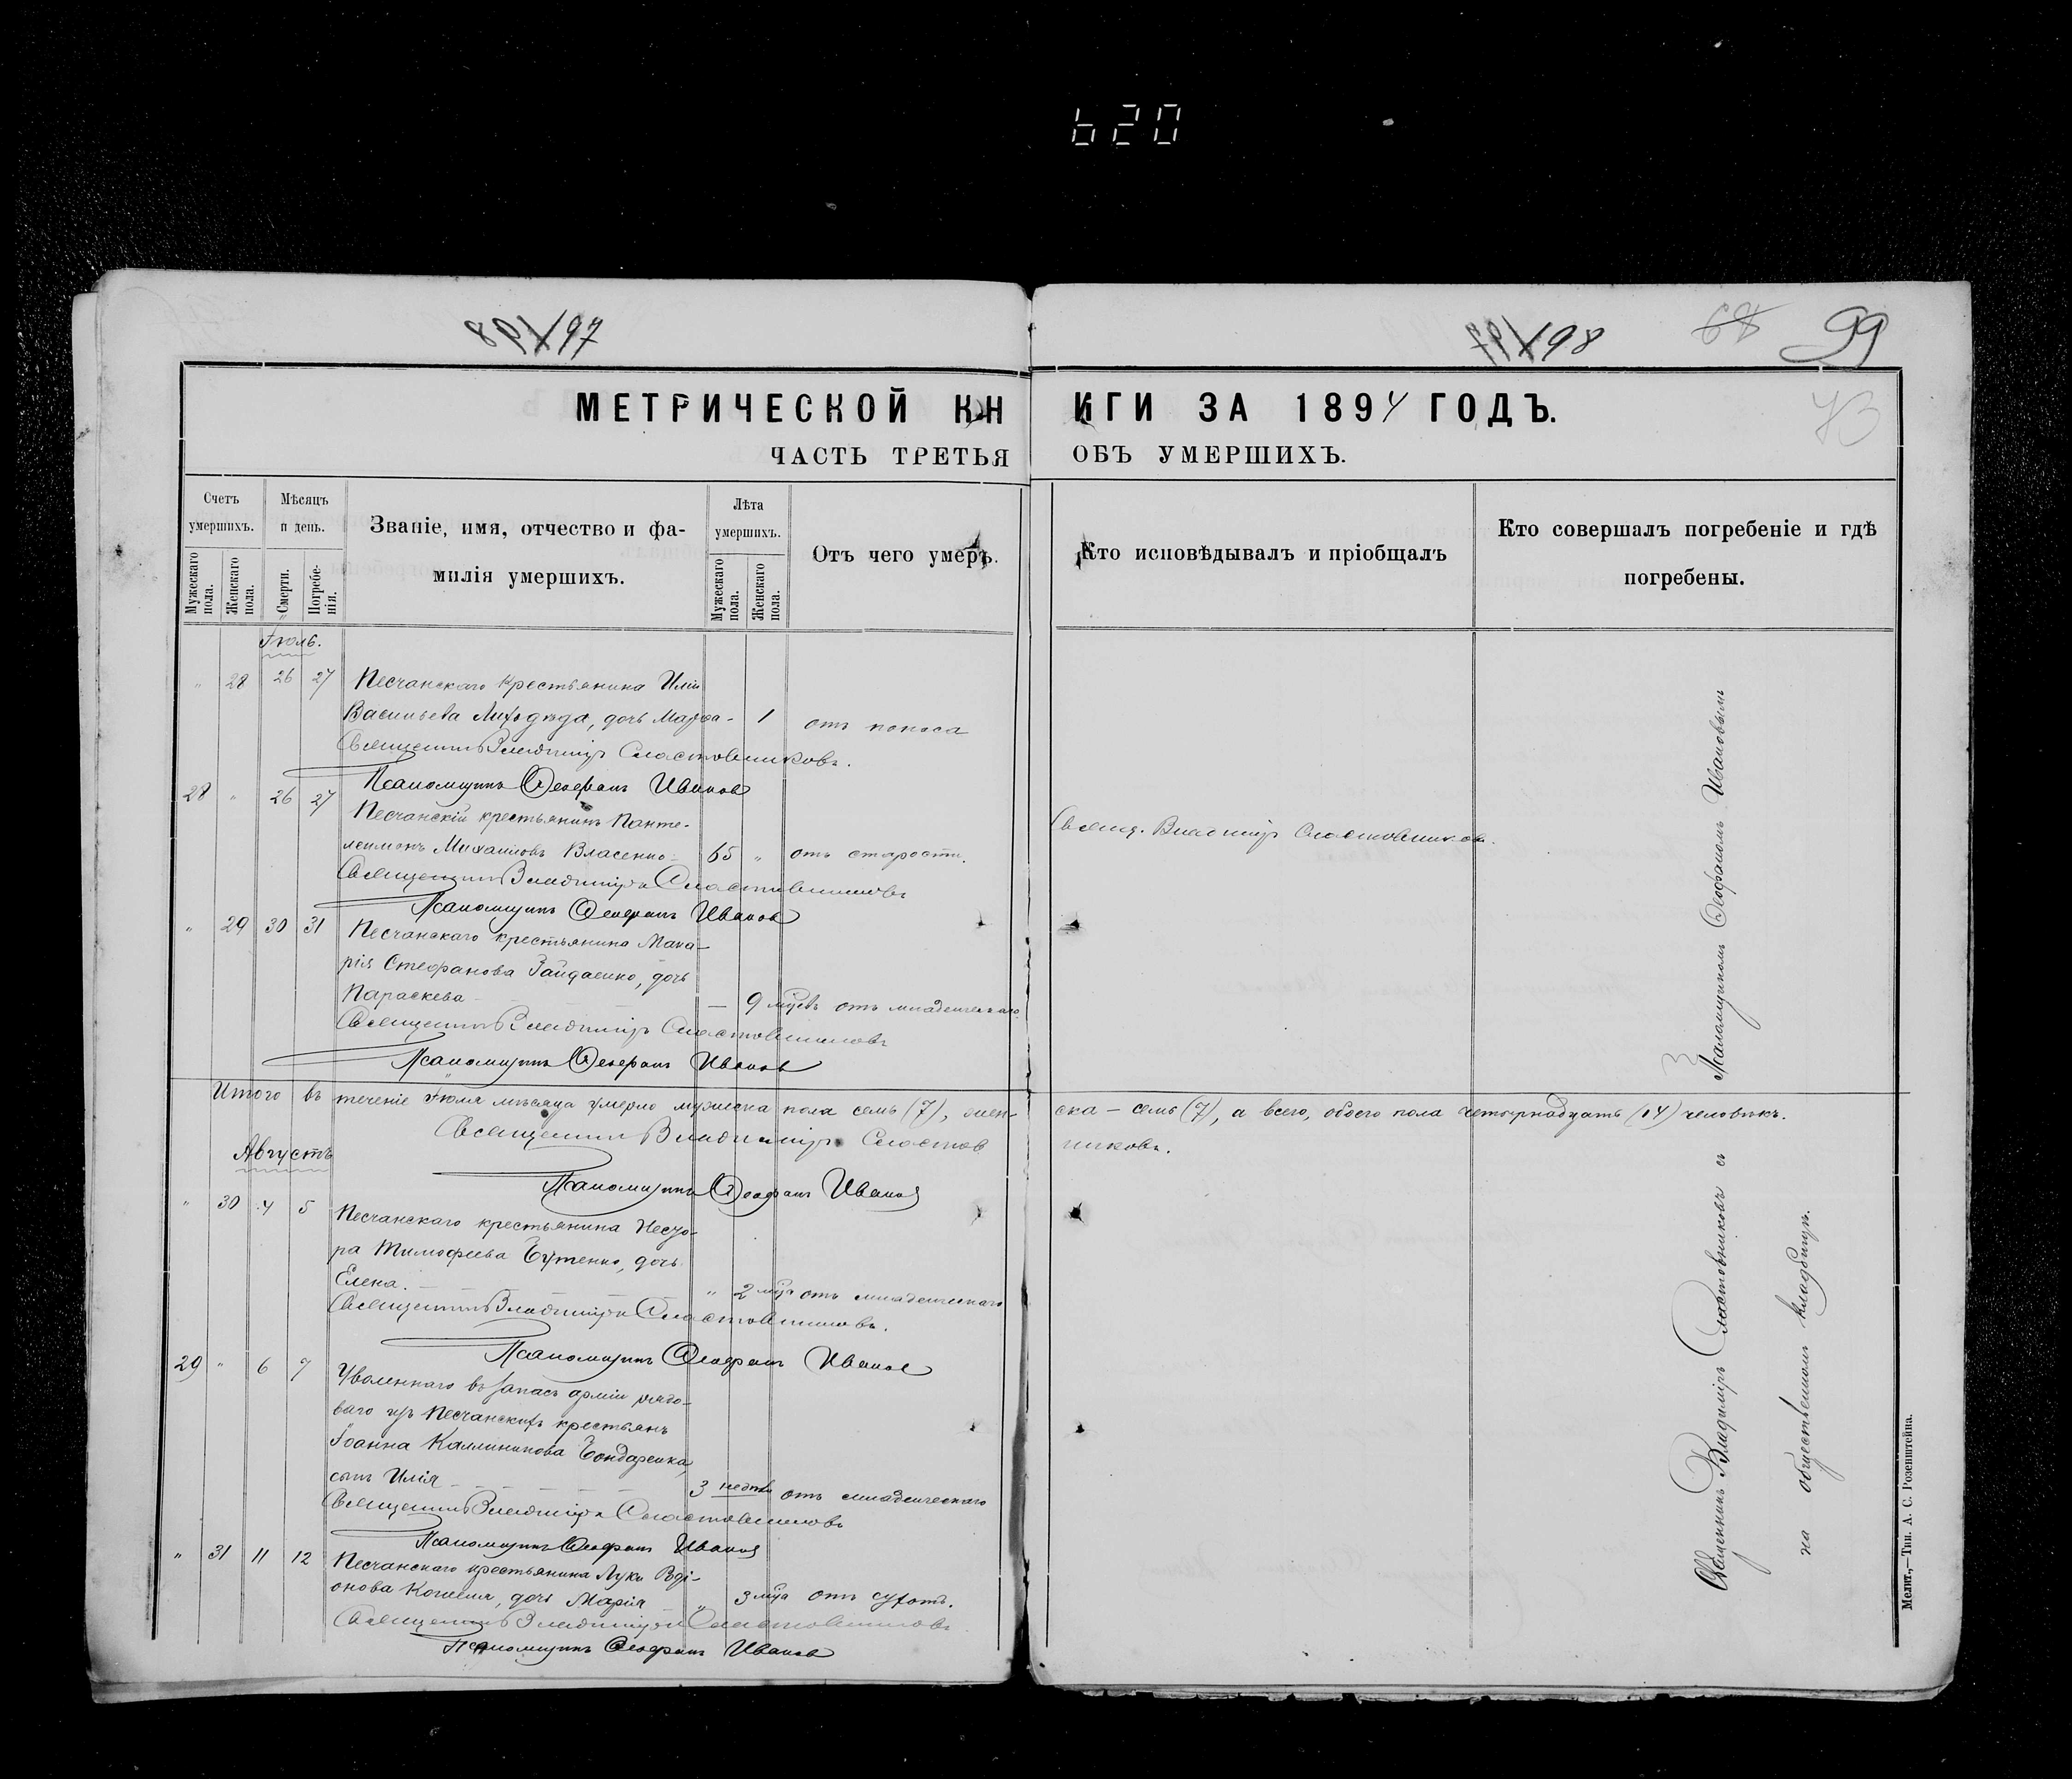 620
97
98
68
99
МЕТРИЧЕСКОЙ КНИГИ ЗА 1894 ГОДЪ.
ЧАСТЬ ТРЕТЬЯ ОБЪ УМЕРШИХЪ.
Счетъ умершихъ.
Мужескаго пола.
Женскаго пола.
Мѣсяцъ и день.
Смерти.
Погребенія.
Званіе, имя, отчество и фа-
милія умершихъ.
Лѣта умершихъ.
Мужескаго пола.
Женскаго пола.
Отъ чего умеръ.
Кто исповѣдывалъ и пріобщалъ
Кто совершалъ погребеніе и гдѣ
погребены.
Іюль.
" 28 26 27 Песчанскаго крестьянина Иліи
Васильева Лиходѣда, дочь Марѳа - 1 отъ поноса
Священникъ Владиміръ Сластовниковъ.
Псаломщикъ Ѳеофанъ Ивановъ
28 " 26 27 Песчанскій крестьянинъ Панте-
леимонъ Михаиловъ Власенко 65 " отъ старости.
Свящ. Владиміръ Сластовниковъ.
Священникъ Владиміръ Сластовниковъ
Псаломщикъ Ѳеофанъ Ивановъ
" 29 30 31 Песчанскаго крестьянина Мака-
рія Стефанова Гайдаенко, дочь
Параскева - — 9 мѣсвъ отъ младенческаго
Священникъ Владиміръ Сластовниковъ
Псаломщикъ Ѳеофанъ Ивановъ
Итого въ теченіе Іюля мѣсяца умерло мужеска пола семь (7), жен-
ска — семь (7), а всего, обоего пола четырнадцать (14) человѣкъ.
Священникъ Владиміръ Сластовниковъ.
Августъ
Псаломщикъ Ѳеофанъ Ивановъ
" 30 4 5 Песчанскаго крестьянина Несто-
ра Тимофеева Бутенко, дочь
Елена. " 2 мца отъ младенческаго
Священникъ Владиміръ Сластовниковъ.
Псаломщикъ Ѳеофанъ Ивановъ
29 " 6 7 Уволеннаго въ запасъ арміи рядо-
ваго изъ Песчанскихъ крестьянъ
Іоанна Каллиникова Бондаренка,
сынъ Илія 3 недѣли отъ младенческаго
Священникъ Владиміръ Сластовниковъ
Псаломщикъ Ѳеофанъ Ивановъ
" 31 11 12 Песчанскаго крестьянина Луки
дочь Марія " 3 мца отъ сухотъ.
Священникъ Владиміръ Сластовниковъ
Псаломщикъ Ѳеофанъ Ивановъ
Священникъ Владиміръ Сластовниковъ съ Псаломщикомъ Ѳеофаномъ Ивановымъ
на общественномъ кладбищѣ.
Мелит.,—Тип. А. С. Розенштейна.